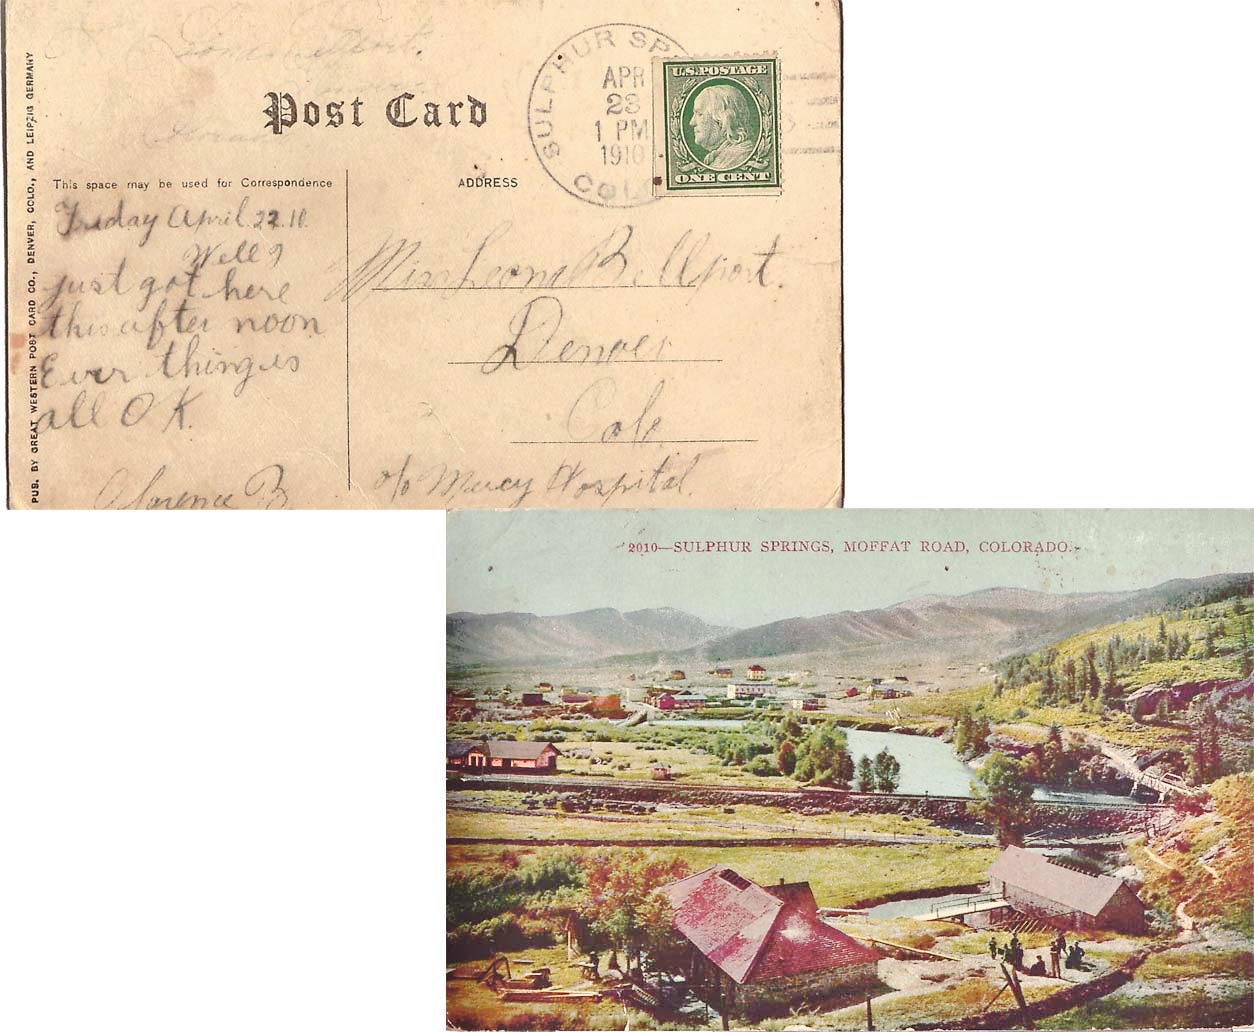 Post Card
SULPHUR SP
APR
23
1 PM
1910
COLO
U.S. POSTAGE
ONE CENT
PUB. BY GREAT WESTERN POST CARD CO., DENVER, COLO., AND LEIPZIG GERMANY
This space may be used for Correspondence
ADDRESS
Friday April 22.10.
Well
just got here
this after noon
Ever thing is
all OK.
Clarence B.
Miss Leone Bellport.
Denver
Colo.
c/o Mercy Hospital.
2010—SULPHUR SPRINGS, MOFFAT ROAD, COLORADO.